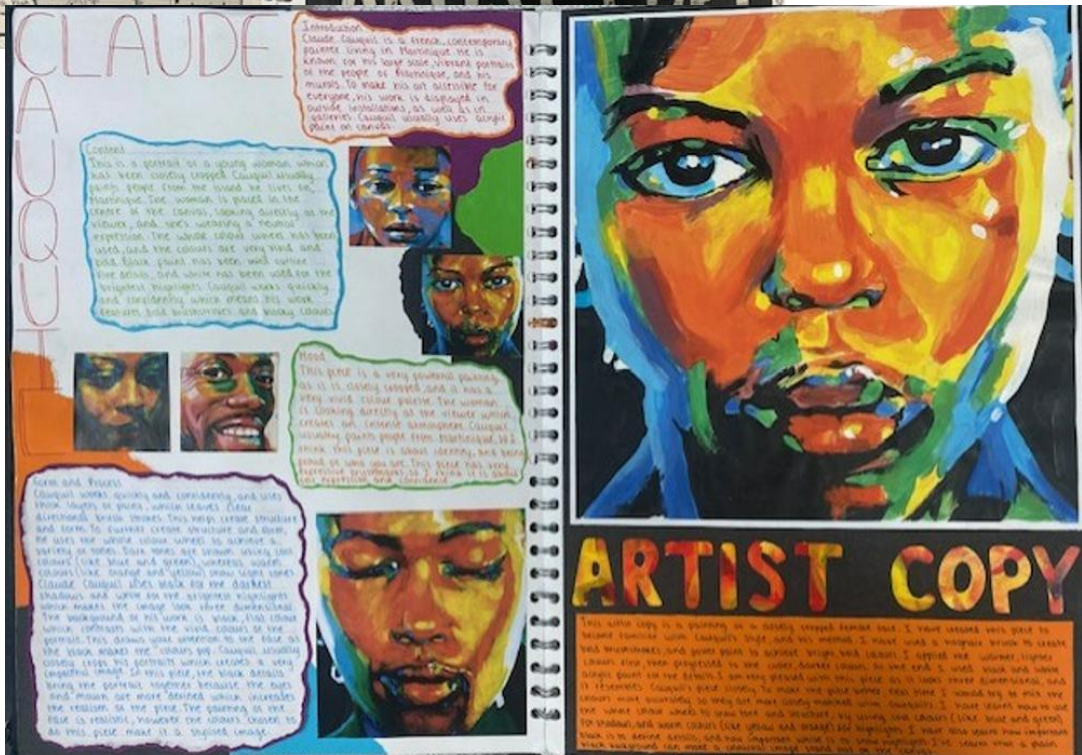 CLAUDE
CAUQUIL
Introduction
Claude Cauquil is a French, contemporary
painter living in Martinique. He is
known for his large scale, vibrant portraits
of the people of Martinique, and his
murals. To make his art accessible for
everyone, his work is displayed in
outside installations, as well as in
galleries. Cauquil usually uses acrylic
paint on canvas.
Content
This is a portrait of a young woman which
has been closely cropped. Cauquil usually
paints people from the island he lives on,
Martinique. The woman is placed in the
centre of the canvas, looking directly at the
viewer, and she's wearing a neutral
expression. The whole colour wheel has been
used, and the colours are very vivid and
bold. Black paint has been used outline
fine details, and white has been used for the
brightest highlights. Cauquil works quickly
and confidently which means his work
features bold brushstrokes and blocky colours.
Mood
This piece is a very powerful painting,
as it is closely cropped, and it has a
very vivid colour palette. The woman
is looking directly at the viewer which
creates an intense atmosphere. Cauquil
usually paints people from Martinique, so I
think this piece is about identity, and being
proud of who you are. This piece has very
expressive brushstrokes, so I think it is about
Form and Process
Cauquil works quickly and confidently, and uses
thick layers of paint, which leaves clear
directional brush strokes. This helps create structure
and form. To further create structure and form,
he uses the whole colour wheel to achieve a
variety of tones. Dark tones are shown using cool
colours (like blue and green), whereas warm
colours (like orange and yellow) show light tones.
Claude Cauquil uses black for the darkest
shadows and white for the brightest highlights
which makes the image look three dimensional.
The background of his work is black, flat colour
which contrasts with the vivid colours of the
portrait. This draws your attention to the face as
the black makes the colours pop. Cauquil usually
closely crops his portraits which creates a very
impactful image. In this piece, the black details
bring the portrait together because the eyes
and mouth are more defined which increases
the realism of the piece. The painting of the
face is realistic, however the colours chosen to
do this piece make it a stylised image.
ARTIST COPY
This artist copy is a painting of a closely cropped female face. I have created this piece to
become familiar with Cauquil's style, and his method. I have used a stagnate brush to create
bold brushstrokes, and poster paint to achieve bright, bold colours. I applied the warmer, lighter
colours first, then progressed to the cooler, darker colours. At the end, I used black and white
acrylic paint for the details. I am very pleased with this piece as it looks three dimensional, and
it resembles Cauquil's piece closely. To make the piece better next time I would try to mix the
colours more accurately so they are more closely matched with Cauquil's. I have learned how to use
the whole colour wheel to show form and structure, by using cool colours (like blue and green)
for shadows, and warm colours (like yellow and orange) for highlights. I have also learnt how important
black is to define details, and how important white is to show highlights.